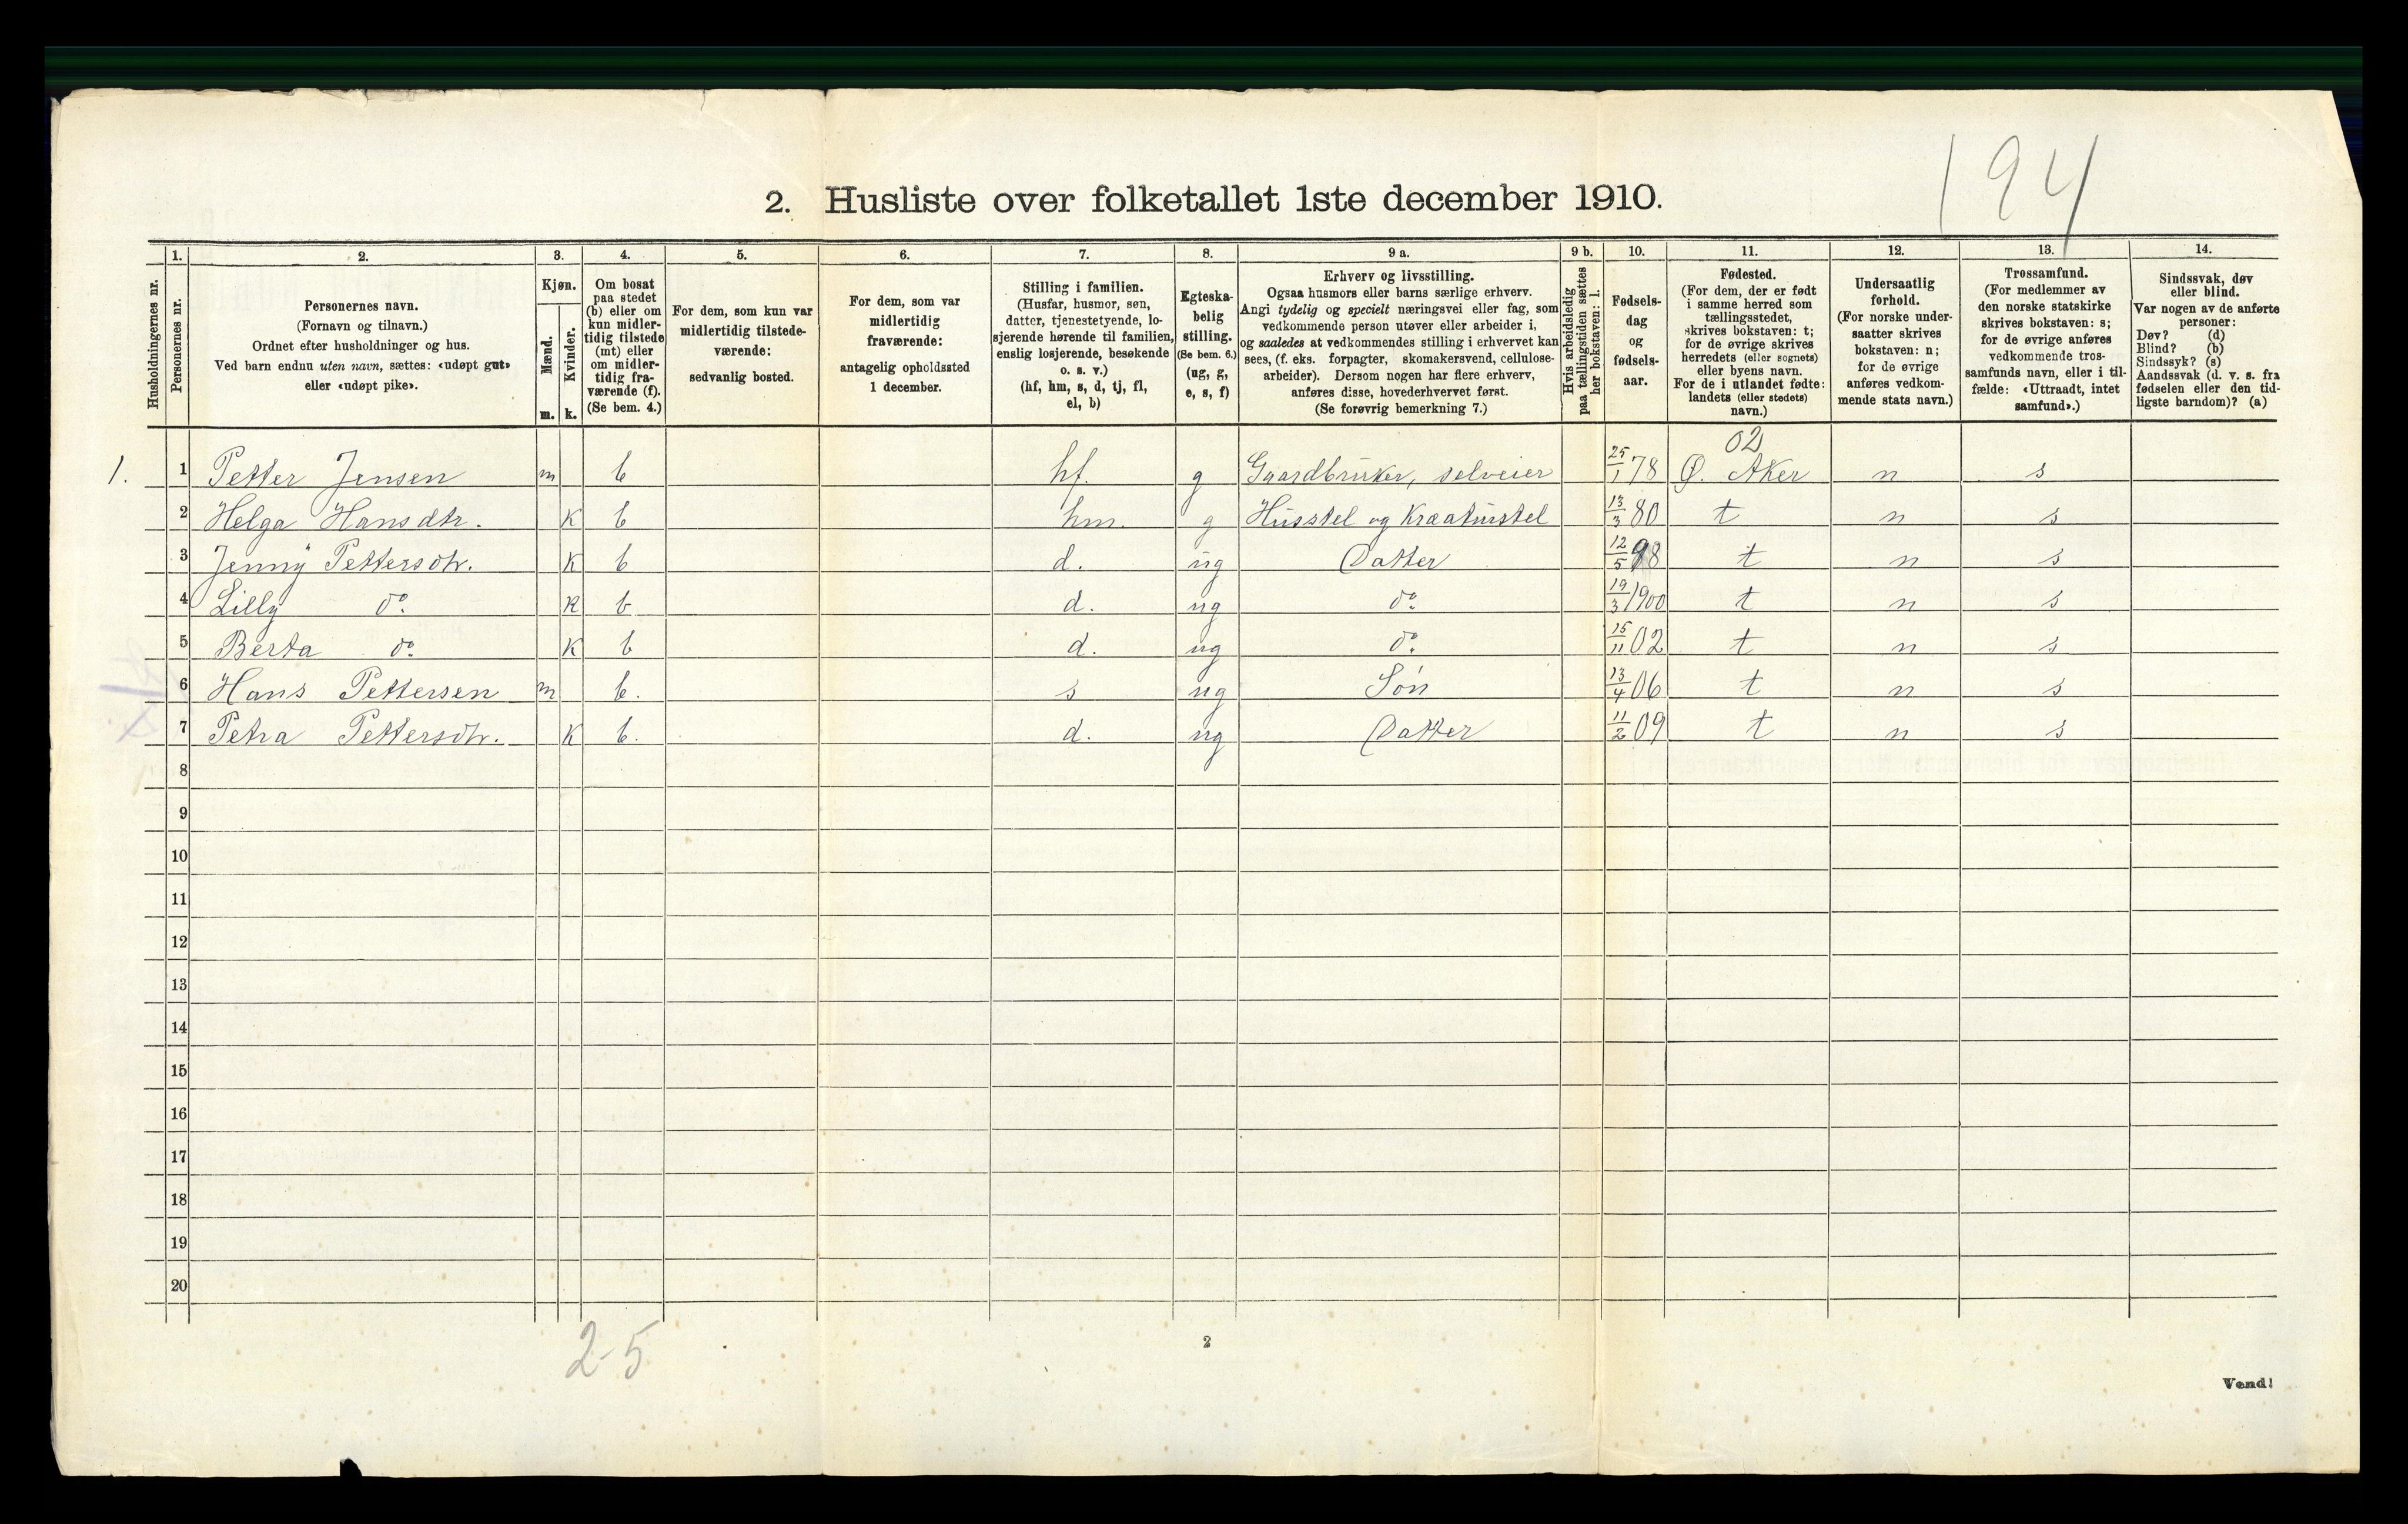 194
2. Husliste over folketallet 1ste december 1910.
Husholdningernes nr.
1. Personernes nr.
2. Personernes navn.
(Fornavn og tilnavn.)
Ordnet efter husholdninger og hus.
Ved barn endnu uten navn, sættes: «udøpt gut»
eller «udøpt pike».
3. Kjøn.
Mænd. m.
Kvinder. k.
4. Om bosat
paa stedet
(b) eller om
kun midler-
tidig tilstede
(mt) eller
om midler-
tidig fra-
værende (f).
(Se bem. 4.)
5. For dem, som kun var
midlertidig tilstede-
værende:
sedvanlig bosted.
6. For dem, som var
midlertidig
fraværende:
antagelig opholdssted
1 december.
7. Stilling i familien.
(Husfar, husmor, søn,
datter, tjenestetyende, lo-
sjerende hørende til familien,
enslig losjerende, besøkende
o. s. v.)
(hf, hm, s, d, tj, fl,
el, b)
8. Egteska-
belig
stilling.
(Se bem. 6.)
(ug, g,
e, s, f)
9 a. Erhverv og livsstilling.
Ogsaa husmors eller barns særlige erhverv.
Angi tydelig og specielt næringsvei eller fag, som
vedkommende person utøver eller arbeider i,
og saaledes at vedkommendes stilling i erhvervet kan
sees, (f. eks. forpagter, skomakersvend, cellulose-
arbeider). Dersom nogen har flere erhverv,
anføres disse, hovederhvervet først.
(Se forøvrig bemerkning 7.)
9 b. Hvis arbeidsledig
paa tællingstiden sættes
her bokstaven: l.
10. Fødsels-
dag
og
fødsels-
aar.
11. Fødested.
(For dem, der er født
i samme herred som
tællingsstedet,
skrives bokstaven: t;
for de øvrige skrives
herredets (eller sognets)
eller byens navn.
For de i utlandet fødte:
landets (eller stedets)
navn.)
12. Undersaatlig
forhold.
(For norske under-
saatter skrives
bokstaven: n;
for de øvrige
anføres vedkom-
mende stats navn.)
13. Trossamfund.
(For medlemmer av
den norske statskirke
skrives bokstaven: s;
for de øvrige anføres
vedkommende tros-
samfunds navn, eller i til-
fælde: «Uttraadt, intet
samfund».)
14. Sindssvak, døv
eller blind.
Var nogen av de anførte
personer:
Døv? (d)
Blind? (b)
Sindssyk? (s)
Aandssvak (d. v. s. fra
fødselen eller den tid-
ligste barndom)? (a)
02
1. 1 Petter Jensen m b hf. g Gaardbruker, selveier 25/1 78 Ø. Aker n s
2 Helga Hansdtr. K b hm. g Husstel og Kreaturstel 13/3 80 t n s
3 Jenny Pettersdtr. K b d. ug Datter 12/5 98 t n s
4 Lilly do. K b d. ug do. 19/3 1900 t n s
5 Berta do. K b d. ug do. 15/11 02 t n s
6 Hans Pettersen m b. s ug Søn 13/4 06 t n s
7 Petra Pettersdtr. K b. d. ug Datter 11/2 09 t n s
8
9
10
11
12
13
14
15
16
17
18
19
20
2-5
2
Vend!